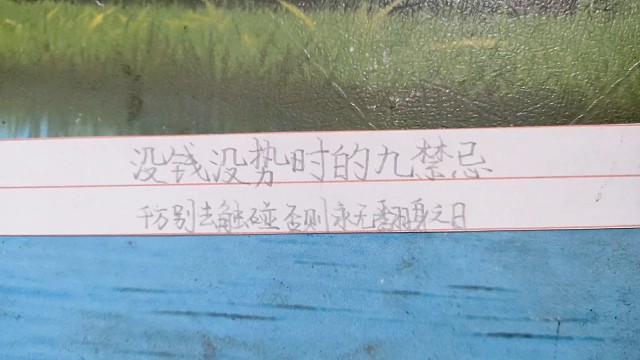 没钱没势时的九禁忌
千万别去触碰否则永无翻身之日